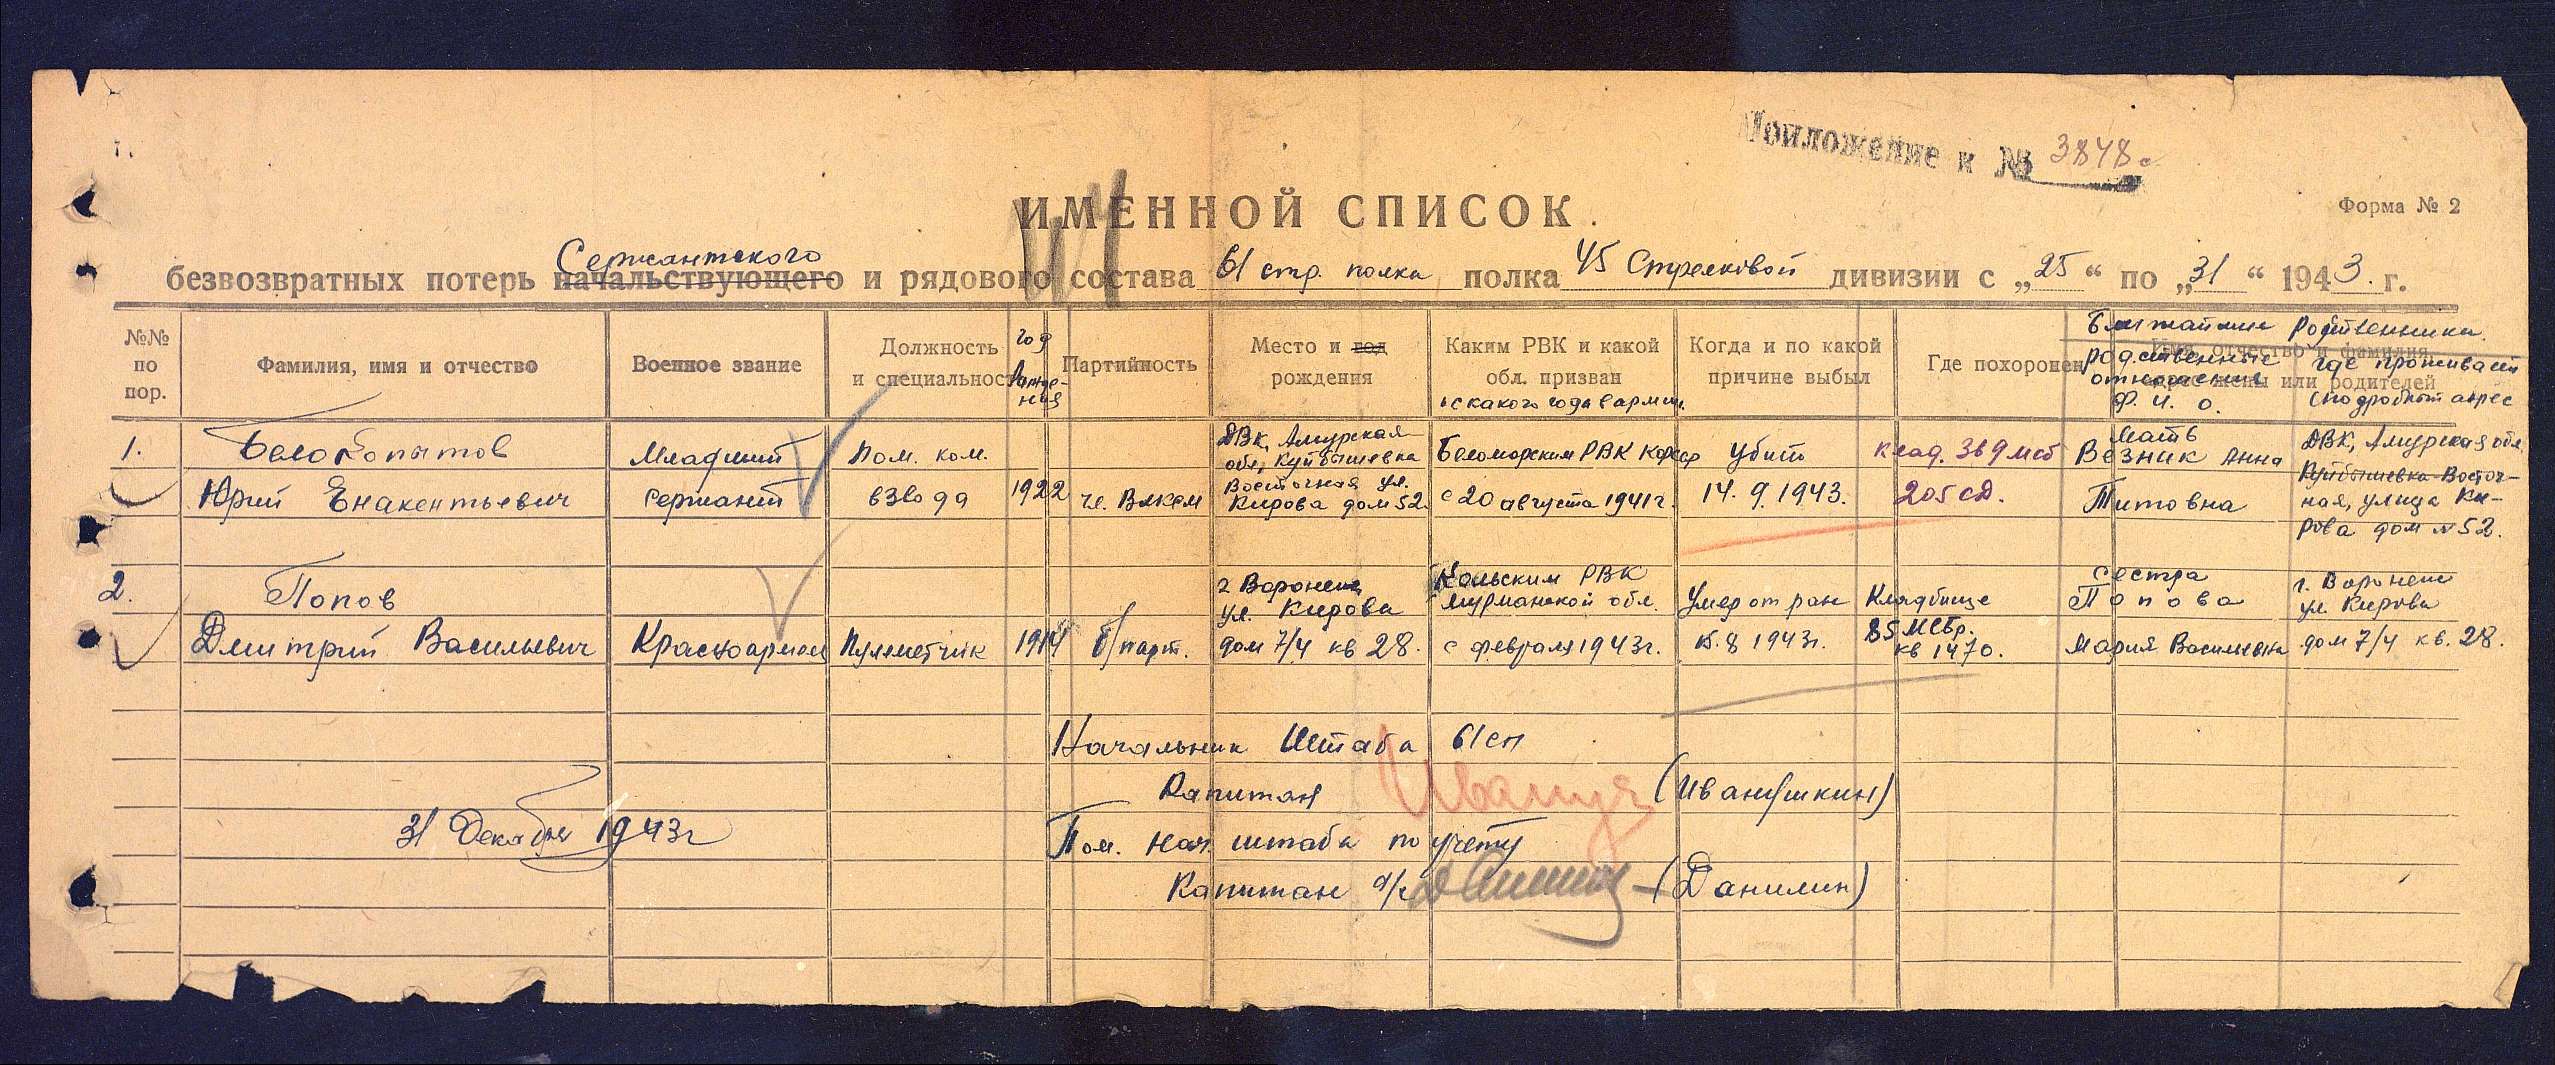 Приложение к № 3848с
ИМЕННОЙ СПИСОК
Форма № 2
Сержантского
безвозвратных потерь начальствующего и рядового состава 61 стр. полка полка 45 Стрелковой дивизии с „25“ по „31“ 1943 г.
№№ по пор.
Фамилия, имя и отчество
Военное звание
Должность и специальность
год рождения
Партийность
Место и год рождения
Каким РВК и какой обл. призван
и с какого года в армии
Когда и по какой причине выбыл
Где похоронен
Ближайшие родственники
родственные отношения Ф. И. О.
Имя, отчество и фамилия,
жены или родителей
где проживает
подробный адрес
1.
Белокопытов
Юрий Енакентьевич
Младший
сержант
Пом. ком.
взвода
1922
чл. Влксм
ДВК, Амурская
обл, Куйбышевка
Восточная ул.
Кирова дом 52.
Беломорским РВК
с 20 августа 1941 г.
убит
14. 9. 1943.
клад. 369 мсб
205 сд.
Мать
Везник Анна
Титовна
ДВК, Амурская обл.
Куйбышевка-Восточ-
ная, улица Ки-
рова дом №52.
2.
Попов
Дмитрий Васильевич
Красноармеец
Пулеметчик
1914
б/парт.
г Воронеж
ул. Кирова
дом 7/4 кв 28.
Кольским РВК
Мурманской обл.
с февраля 1943г.
Умер от ран
8 1943г.
Кладбище
85 МСбр.
кв 1470.
сестра
Попова
Мария Васильевна
г. Воронеж
ул Кирова
дом 7/4 кв. 28.
Начальник Штаба 61 сп
Капитан (Иванушкин)
31 Декабря 1943г
Пом. Нач. штаба по учету
Капитан а/с (Данилин)